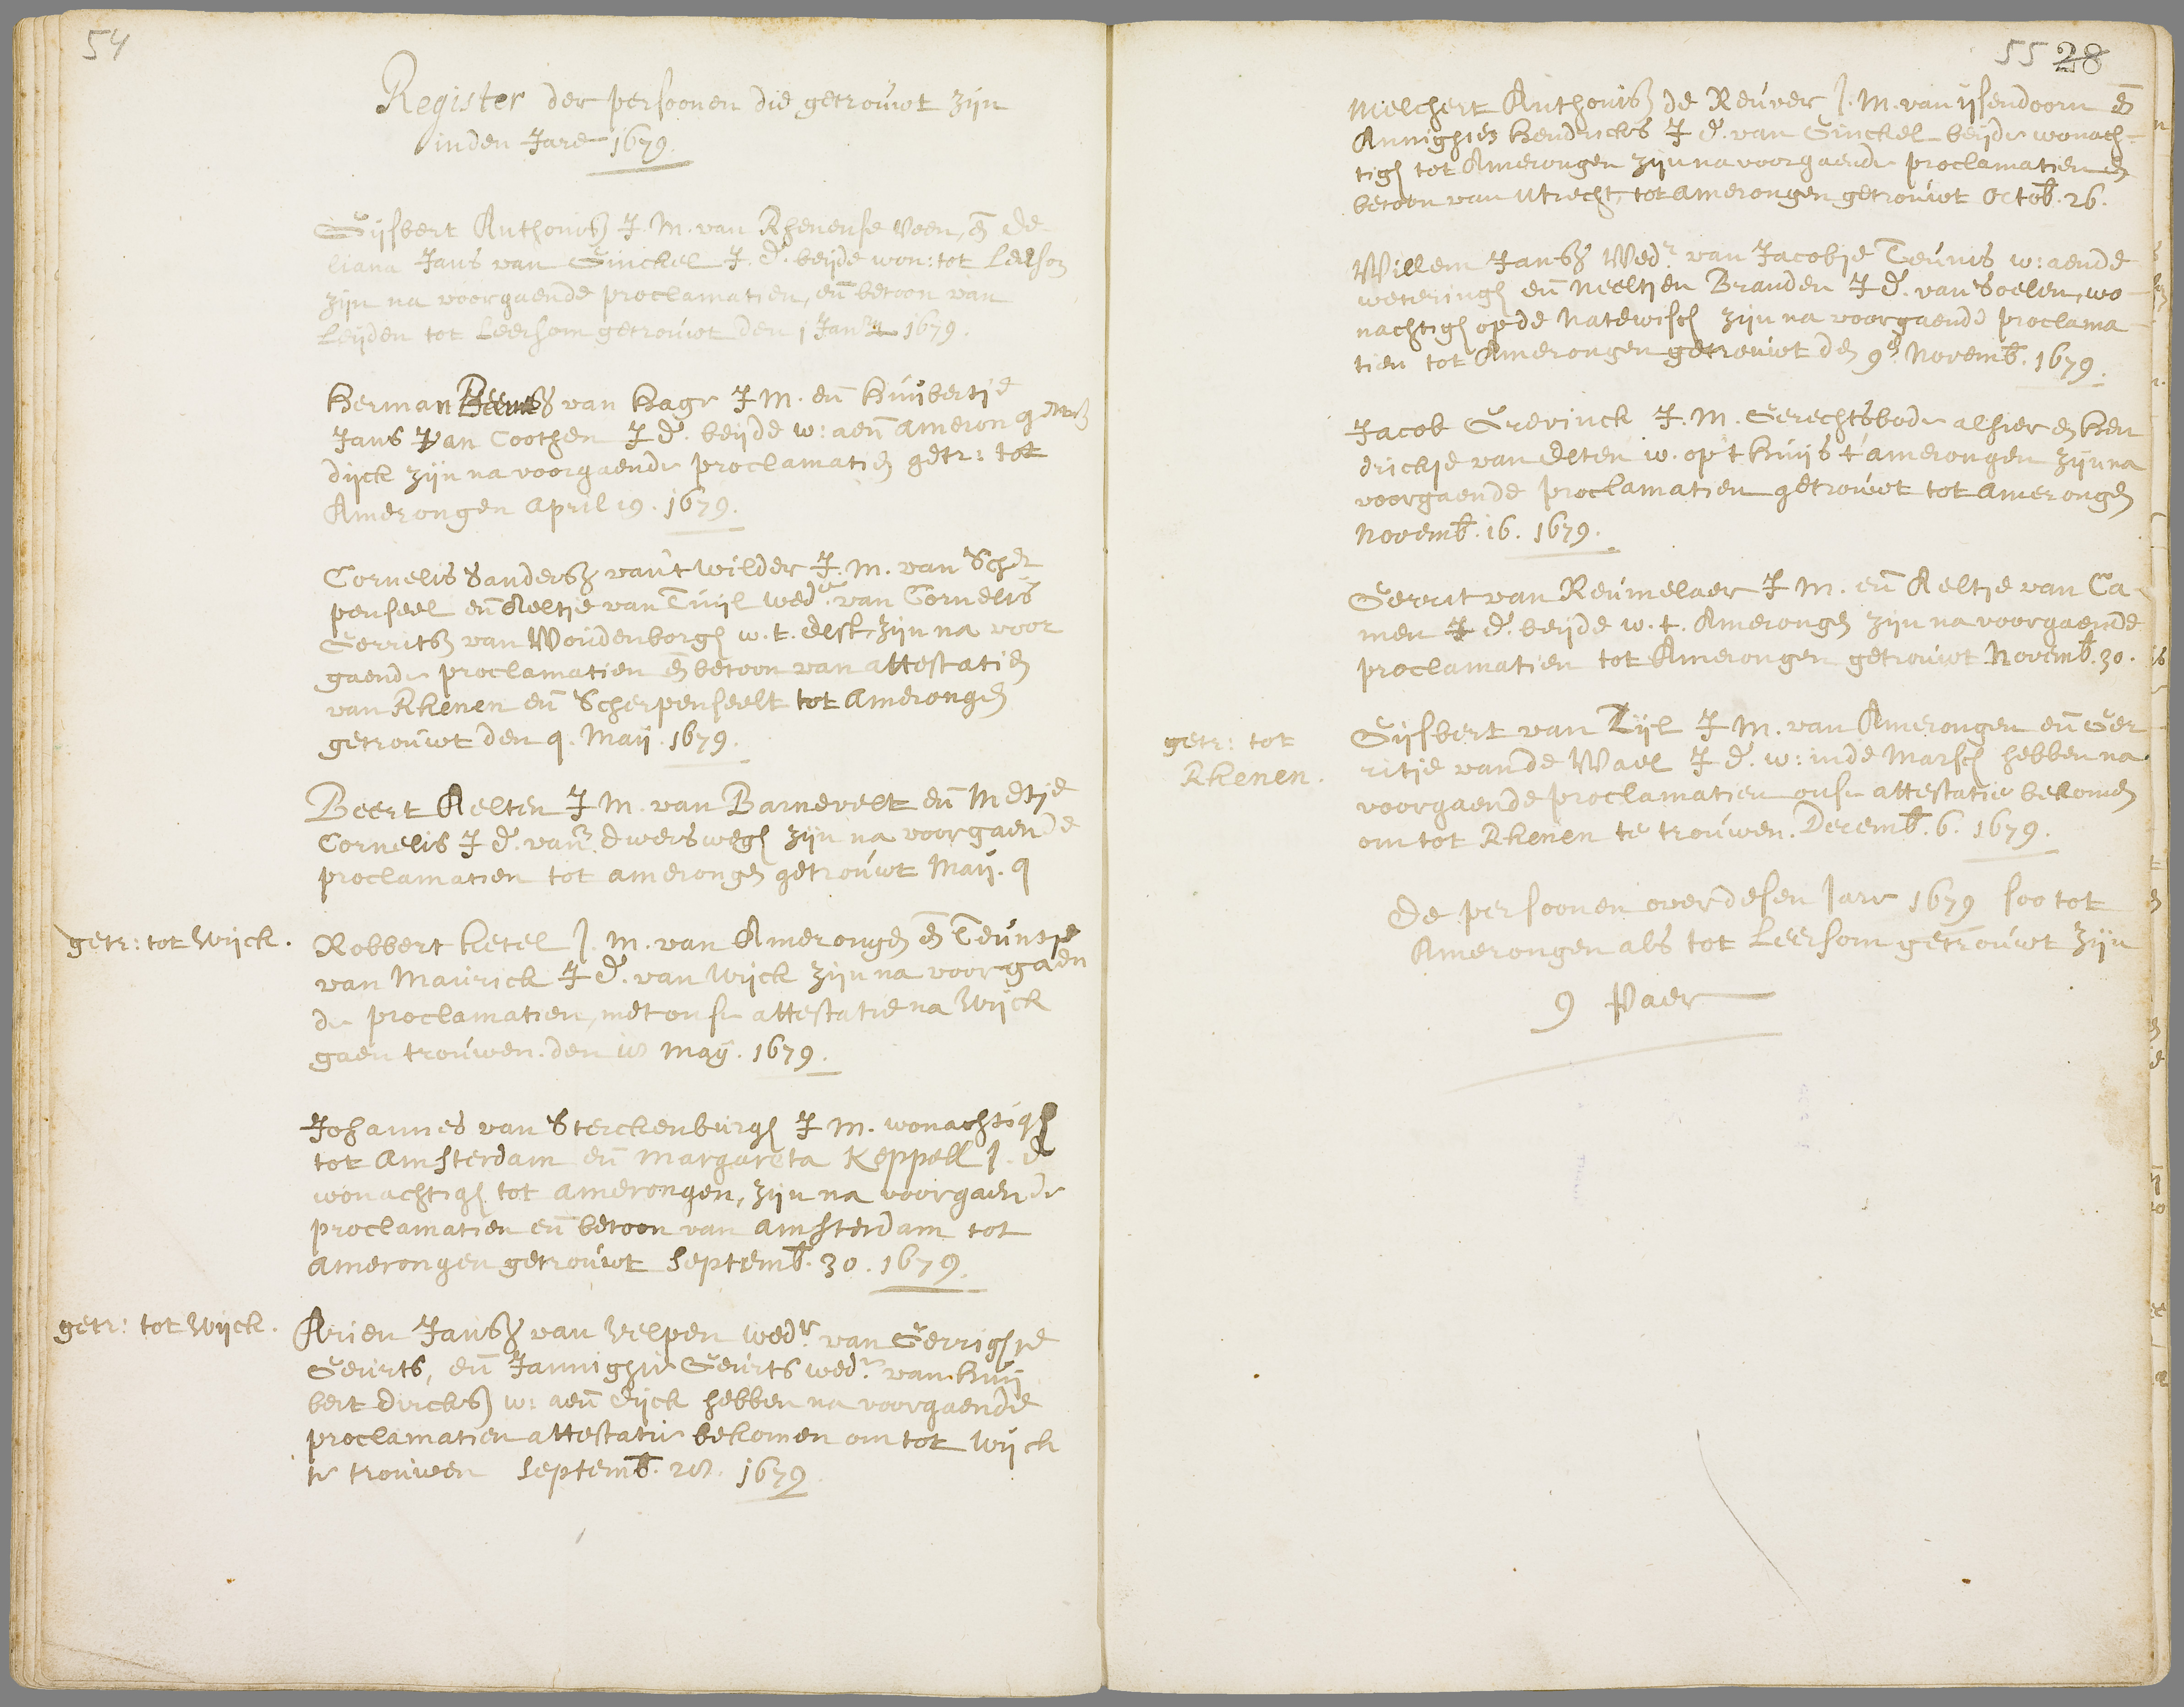 54
Register der persoonen die getrouwt zijn
inden Jare 1679.
Gijsbert Anthonisz J. M. van Rhenense Veen, en de
liana Jans van Ginckel J. d. beijde won: tot Leersom
zijn na voorgaende proclamatien, en betoon van
Leijden tot Leersom getrouwt den 1 Janry 1679.
Herman van Hage J M. en Huijbertje
Jans van Coothen J d. beijde w: aen Amerongerse
dijck zijn na voorgaende proclamatien getr: tot
Amerongen April 19. 1679.
Cornelis Sandersz van 't wilder J. M. van Scher
penseel en Aeltje van Tuijl wede. van Cornelis
Gerritsz van Woudenborgh w. t. Elst, zijn na voor
gaende proclamatien en betoon van attestatien
van Rhenen en Scherpenseelt tot Amerongen
getrouwt den 9. Maij. 1679.
Beert Aelten J M. van Barnevelt en Metje
Cornelis J d. van dwerswegh zijn na voorgaende
proclamatien tot amerongen getrouwt Maij. 9
getr: tot Wijck.
Robbert Ketel J. M. van Amerongen en Teuntje
van Maurick J d. van Wijck zijn na voorgaen
de proclamatien, met onse attestatie na Wijck
gaen trouwen. den 18 maij. 1679.
Johannes van Sterckenburgh J M. wonachtigh
tot Amsterdam en Margareta Keppell J. d
wonachtigh tot amerongen, zijn na voorgaende
proclamatien en betoon van amsterdam tot
amerongen getrouwt Septemb. 30. 1679.
getr: tot Wijck.
Arien Jansz van Velpen wedr. van Gerrighje
Geurts, en Jannighje Geurts wedr. van Huij
bert Dircksz w: aen Dijck hebben na voorgaende
proclamatien attestatie bekomen om tot Wijck
te trouwen Septemb. 28. 1679
55 28
Melchert Anthonisz de Reuver J. M. van ijsendoorn en
Annighien Hendricks J d. van Ginckel beijde wonach-
tigh tot Amerongen zijn na voorgaende proclamatien en
betoon van Utrecht, tot amerongen getrouwt Octob. 26.
Willem Jansz Wedr van Jacobje Teunis w: aende
weteringh en Neeltjen Branden J d. van Soelen, wo-
nachtigh op de Natewisch zijn na voorgaende proclama-
tien tot Amerongen getrouwt den 9e Novemb. 1679.
Jacob Grevinck J. M. Gerechtsbode alhier en Hen
drickje van Elten w. op 't huijs t'amerongen zijn na
voorgaende proclamatien getrouwt tot amerongen
Novemb. 16. 1679.
Gerrit van Reumelaer J M. en Aeltje van Ca-
men J d. beijde w. t. Amerongen zijn na voorgaende
proclamatien tot Amerongen getrouwt Novemb. 30.
getr: tot
Rhenen.
Gijsbert van Zijl J M. van Amerongen en Ger
ritje van de Wael J d. w: inde Marsch hebben na
voorgaende proclamatien onse attestatie bekomen
om tot Rhenen te trouwen. Decemb. 6. 1679.
De persoonen over desen Jare 1679 soo tot
Amerongen als tot Leersom getrouwt zijn
9 Paer